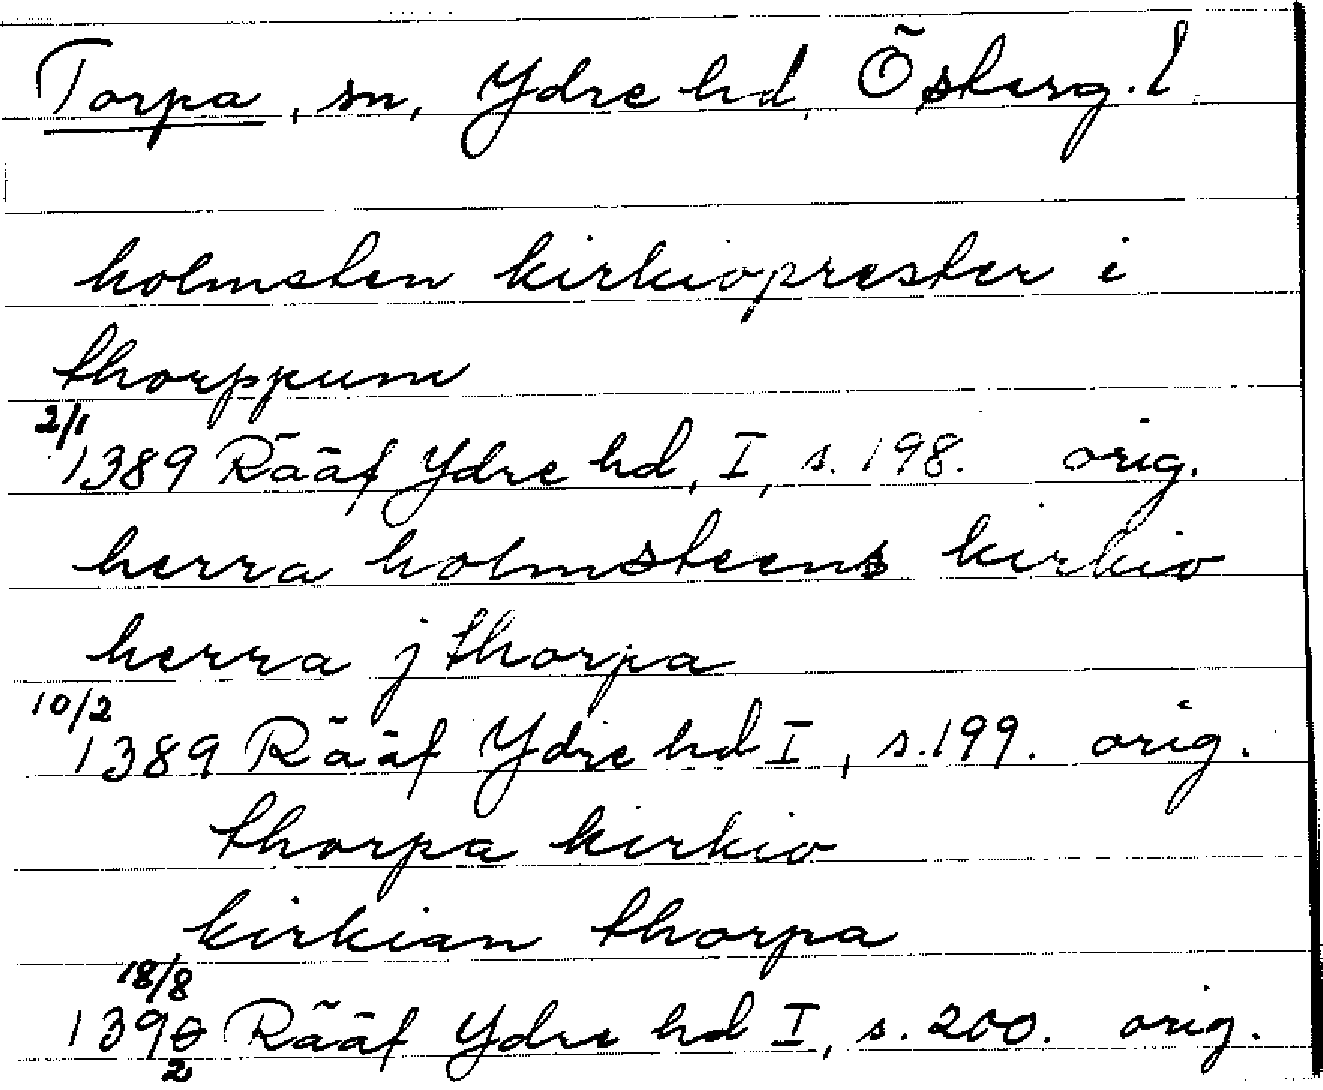 Torpa, sn, Ydre hd, Österg. l
holmsten kirkioprester i
thorppum
2/1
1389 Rääf Ydre hd, I, s. 198. orig.
herra holmsteens kirkio
herra j thorpa
10/2
1389 Rääf Ydre hd I, s. 199. orig.
thorpa kirkio
kirkian thorpa
18/8
1390 Rääf Ydre hd I, s. 200. orig.
2